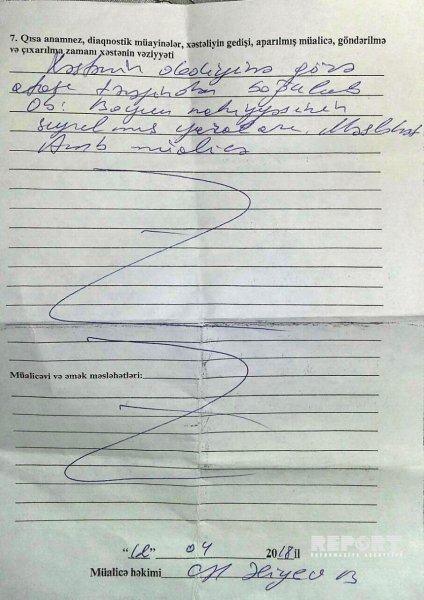 7. Qısa anamnez, diaqnostik müayinələr, xəstəliyin gedişi, aparılmış müalicə, göndərilmə
və çıxarılma zamanı xəstənin vəziyyəti
Xəstənin dediyinə görə
atası tərəfindən boğulub
Ob: Boyun nahiyəsinin
yaraları. Məsləhət
Amb müalicə
Müalicəvi və əmək məsləhətləri:
"12" 04 2018 il
Müalicə həkimi Əliyev B
REPORT